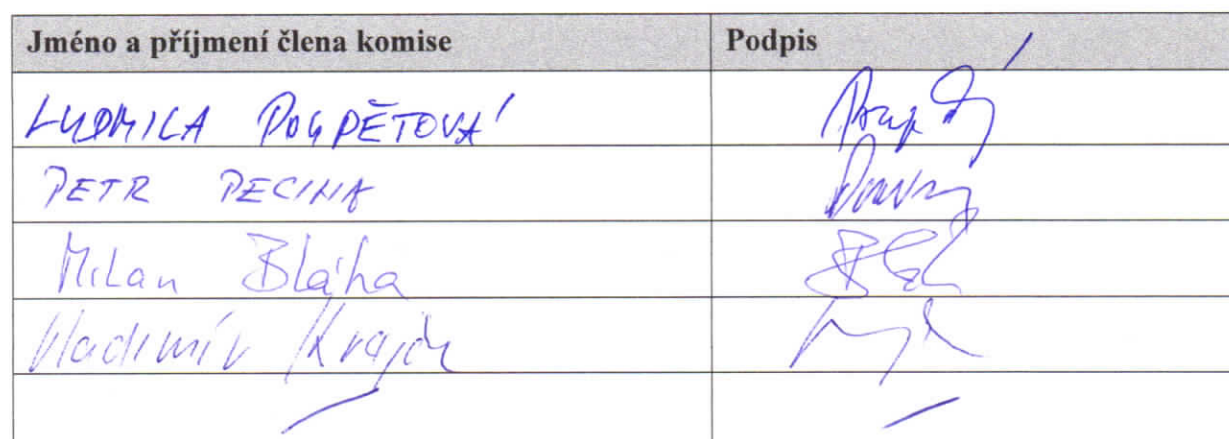 Jméno a příjmení člena komise Podpis
LUDMILA POUPĚTOVÁ
PETR PECINA
Milan Bláha
Vladimír